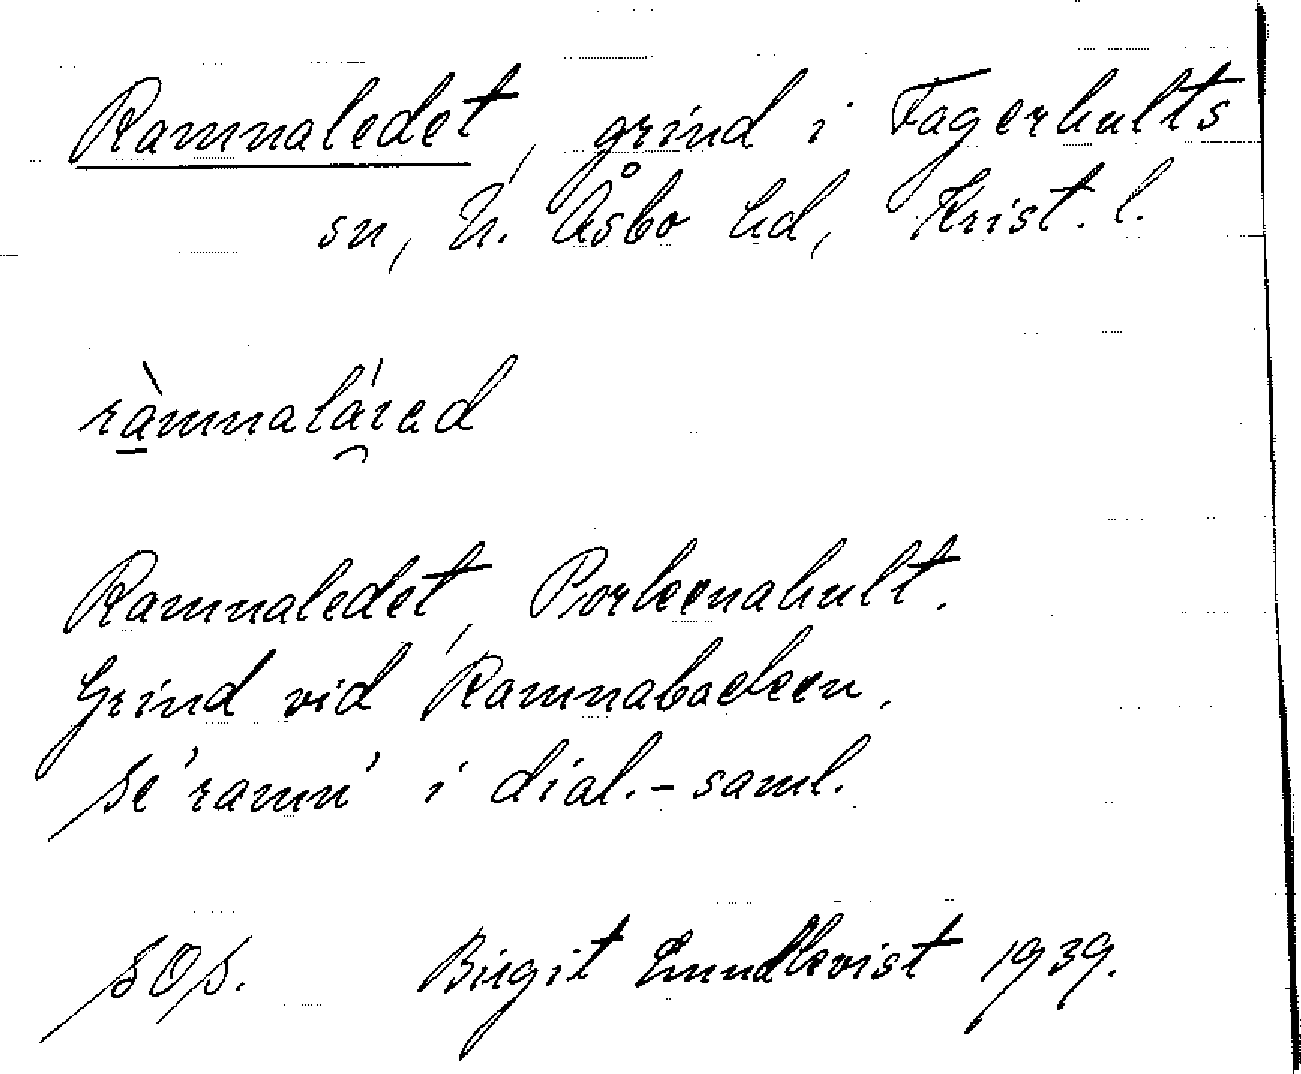 Ramnaledet, grind i Fagerhults
sn, N. Åsbo hd, Krist. l.
ràmnaláred
Ramnaledet, Porkenahult.
Grind vid Ramnabacken.
Se 'ramn' i dial.-saml.
SOS. Birgit Lundkvist 1939.